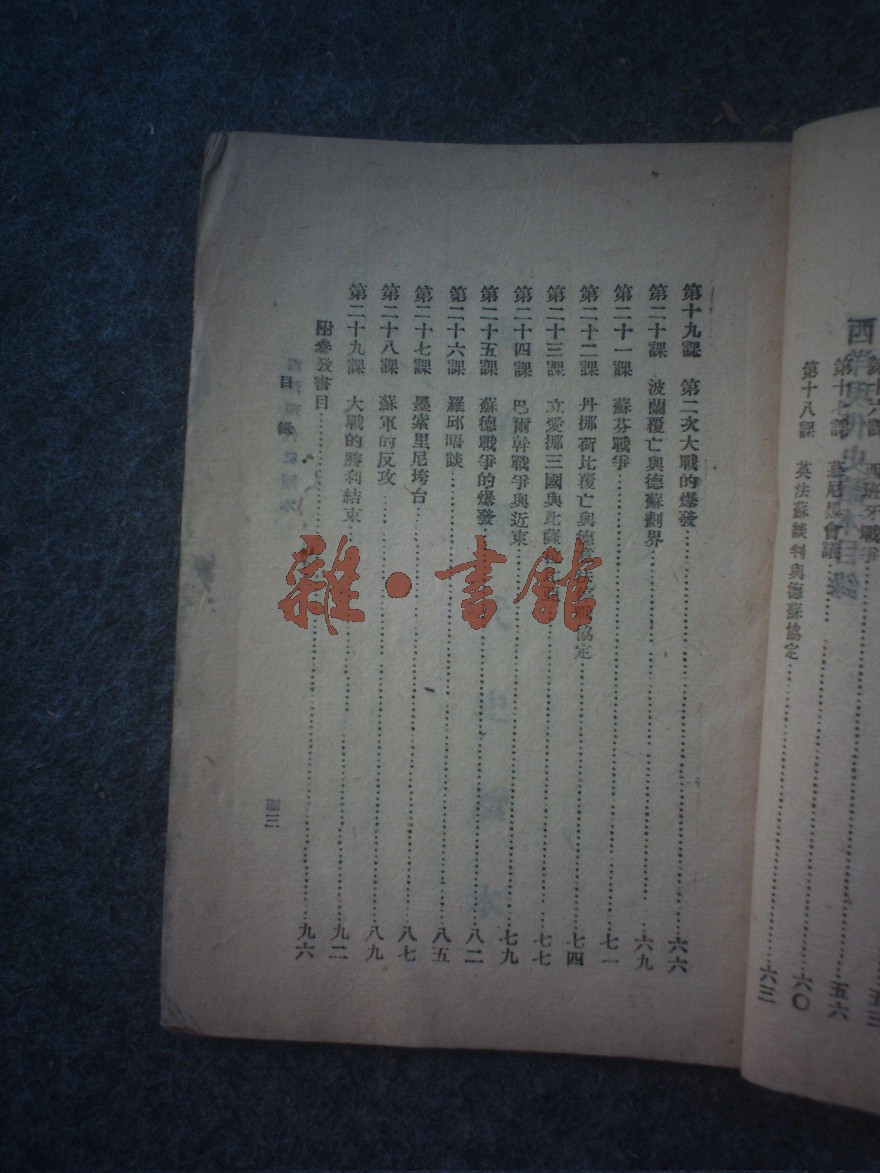 第十六課 西班牙戰爭……五三
第十七課 慕尼黑會議……五六
第十八課 英法蘇談判與德蘇協定……六〇
六三
第十九課 第二次大戰的爆發……六六
第二十課 波蘭覆亡與德蘇劃界……六九
第二十一課 蘇芬戰爭……七一
第二十二課 丹挪荷比覆亡與德意法 協定……七四
第二十三課 立愛挪三國與比薩……七七
第二十四課 巴爾幹戰爭與近東……七九
第二十五課 蘇德戰爭的爆發……八二
第二十六課 羅邱晤談……八五
第二十七課 墨索里尼垮台……八七
第二十八課 蘇軍的反攻……八九
第二十九課 大戰的勝利結束……九二
附參攷書目……九六
目錄
雜·書館